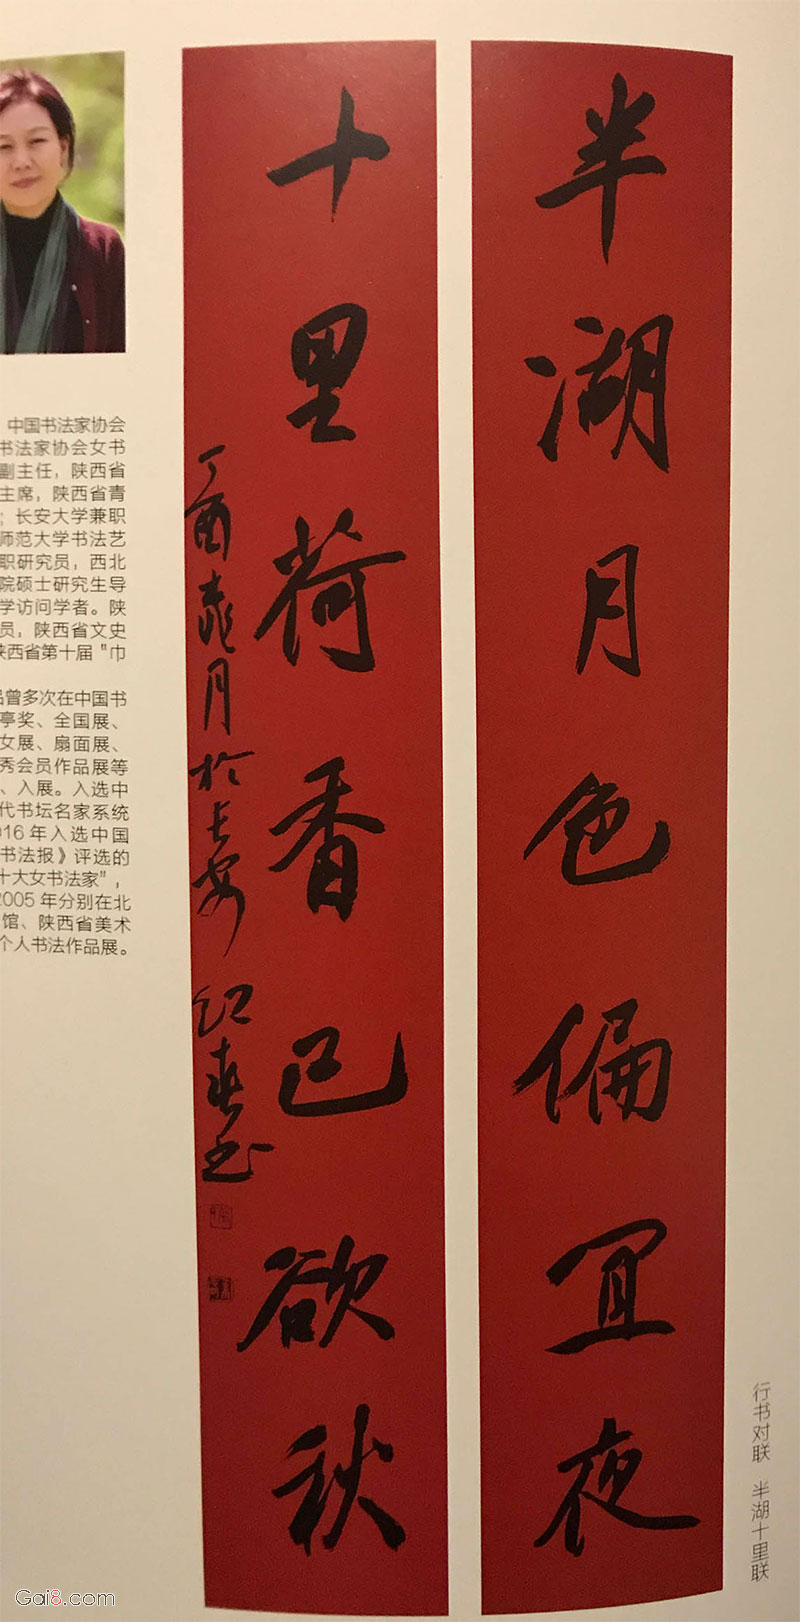 半湖月色偏宜夜
十里荷香已欲秋
丁酉桃月於长安 红春书
行书对联 半湖十里联
中国书法家协会
书法家协会女书
副主任，陕西省
主席，陕西省青
；长安大学兼职
师范大学书法艺
职研究员，西北
院硕士研究生导
学访问学者。陕
员，陕西省文史
陕西省第十届"巾
品曾多次在中国书
亭奖、全国展、
女展、扇面展、
秀会员作品展等
、入展。入选中
代书坛名家系统
016年入选中国
书法报》评选的
十大女书法家"，
2005年分别在北
馆、陕西省美术
个人书法作品展。
Gai8.com